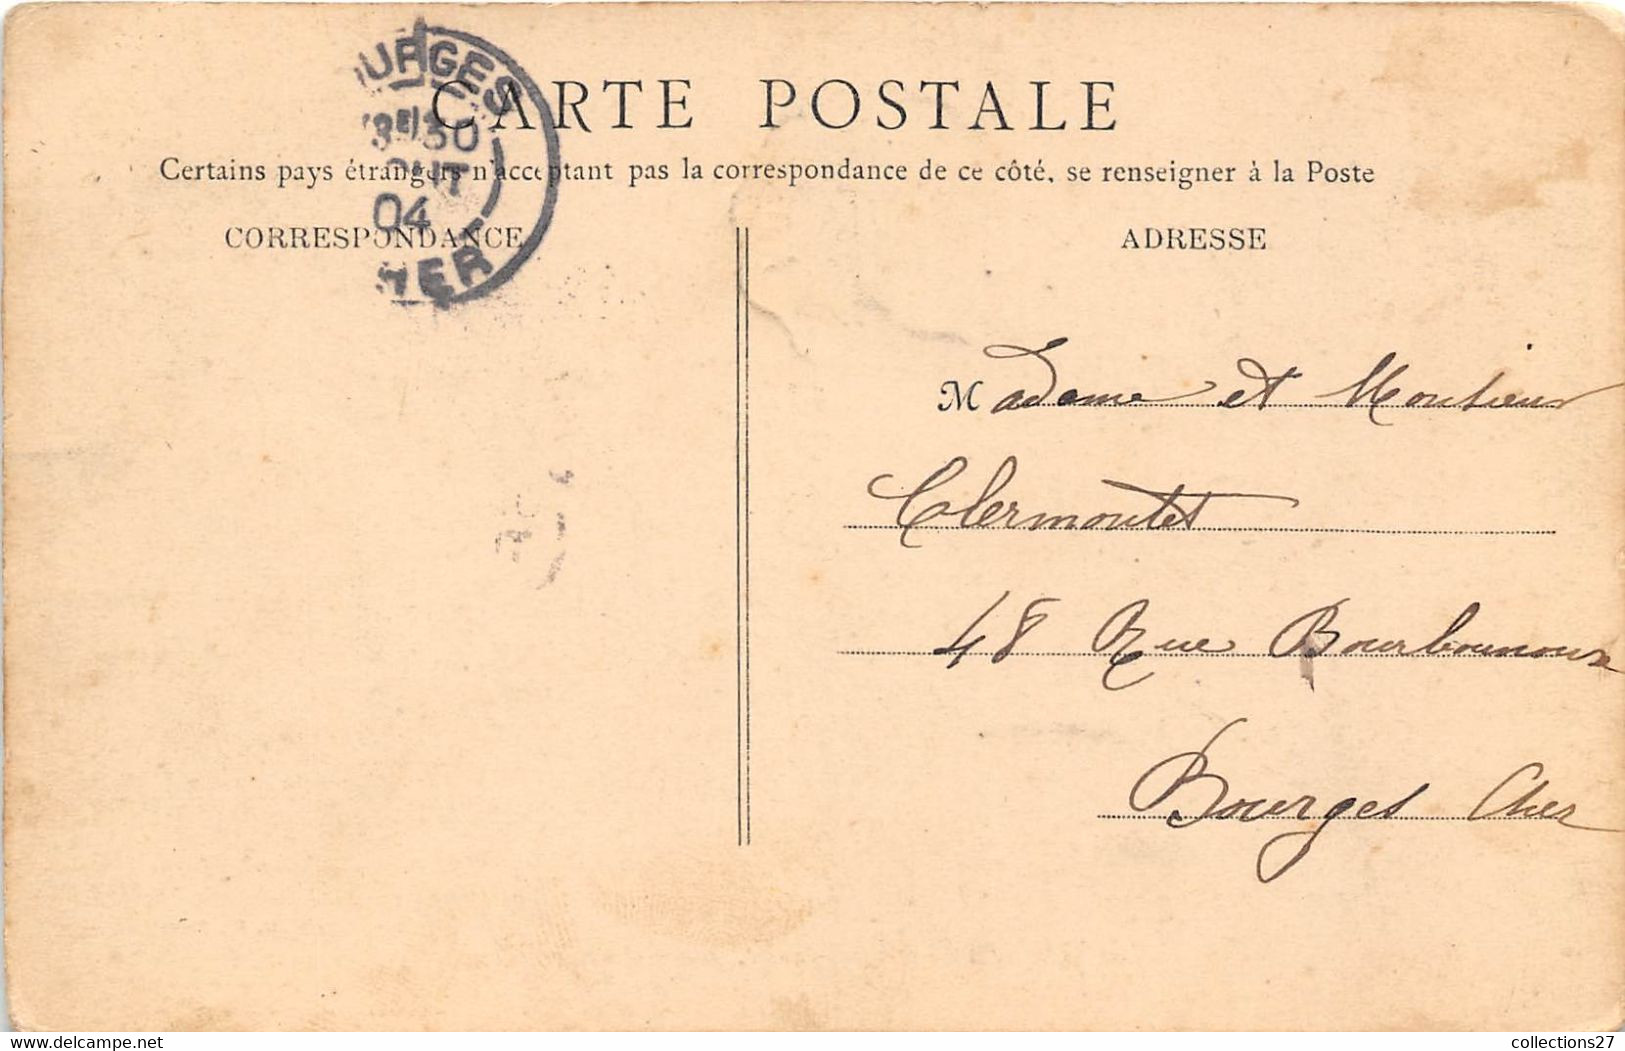 CARTE POSTALE
Certains pays étrangers n'acceptant pas la correspondance de ce côté, se renseigner à la Poste
CORRESPONDANCE
ADRESSE
URGES
30
OUT
04
HER
Madame et Monsieur
Clermontet
48 Rue Bourbonnoux
Bourges Cher
www.delcampe.net
collections27